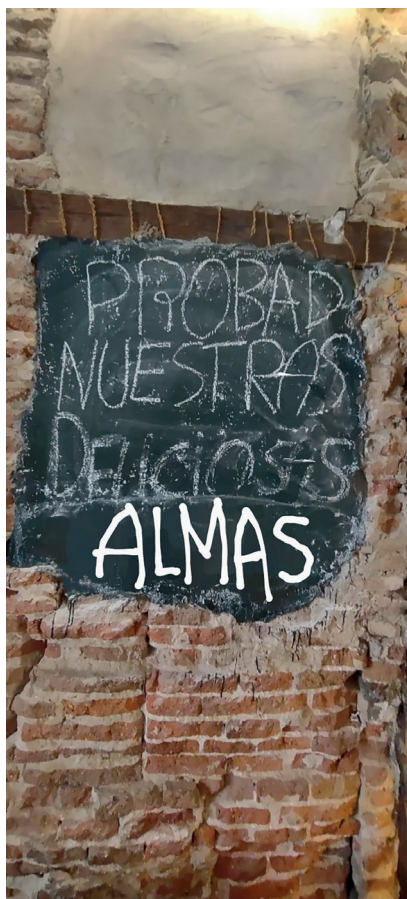 PROBAD
NUESTRAS
DELICIOSAS
ALMAS